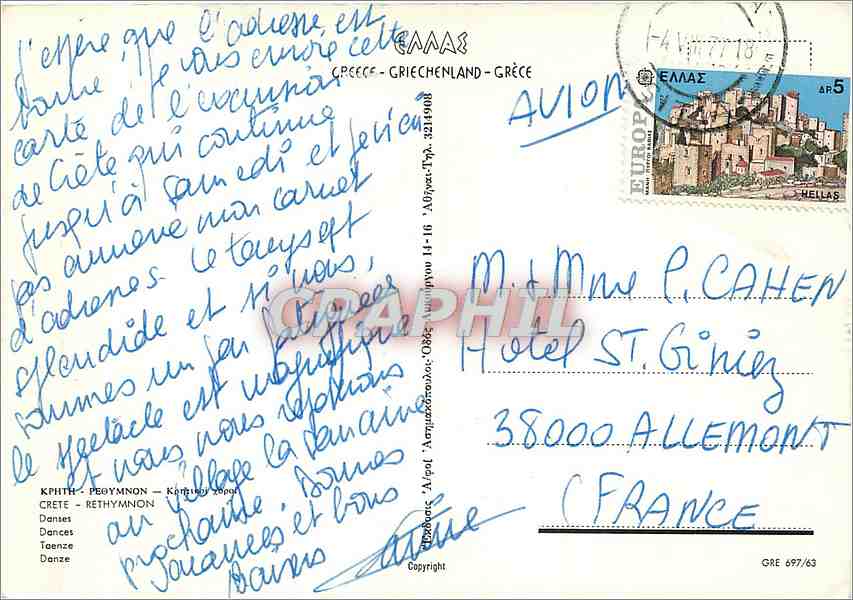 J'espère que l'adresse est
bonne, je vous envoie cette
carte de l'excursion
de Crète qui continue
jusqu'à samedi et je n'ai
pas amené mon carnet
d'adresses. Le temps est
splendide et si nous
sommes un peu fatiguées
le spectacle est magnifique
et nous nous reposerons
au village la semaine
prochaine. Bonnes
vacances et bons
baisers
ΕΛΛΑΣ
GREECE - GRIECHENLAND - GRÈCE
AVION
-4 VIII 77 18
ΕΛΛΑΣ
ΔΡ. 5
EUROPA
ΜΑΝΗ ΠΥΡΓΟΙ ΒΑΘΙΑΣ
HELLAS
M. & Mme P. CAHEN
Hotel ST. Giniez
38000 ALLEMONT
(FRANCE
Ἔκδοσις Ἀ/φοί Ἀσημακόπουλος Ὁδὸς Λυκούργου 14-16 Ἀθῆναι-Τηλ. 3214908
CPAPHIL
ΚΡΗΤΗ - ΡΕΘΥΜΝΟΝ — Κρητικοὶ χοροί
CRETE - RETHYMNON
Danses
Dances
Taenze
Danze
Copyright
GRE 697/63